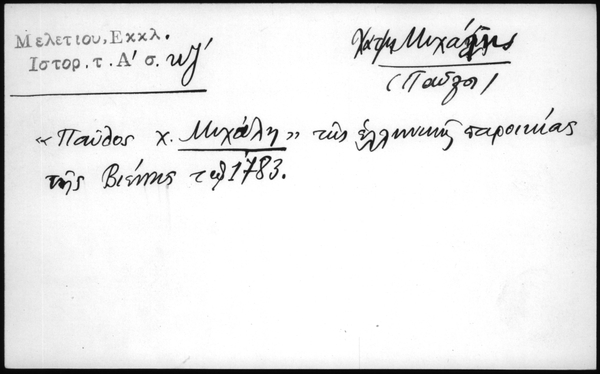 Μελετίου, Εκκλ.
Ιστορ. τ. Α' σ. κζ'
Χατζη Μιχάλης
(Παῦλος)
«Παῦλος χ. Μιχάλη» τῆς ἑλληνικῆς παροικίας
τῆς Βιέννης τῷ 1783.